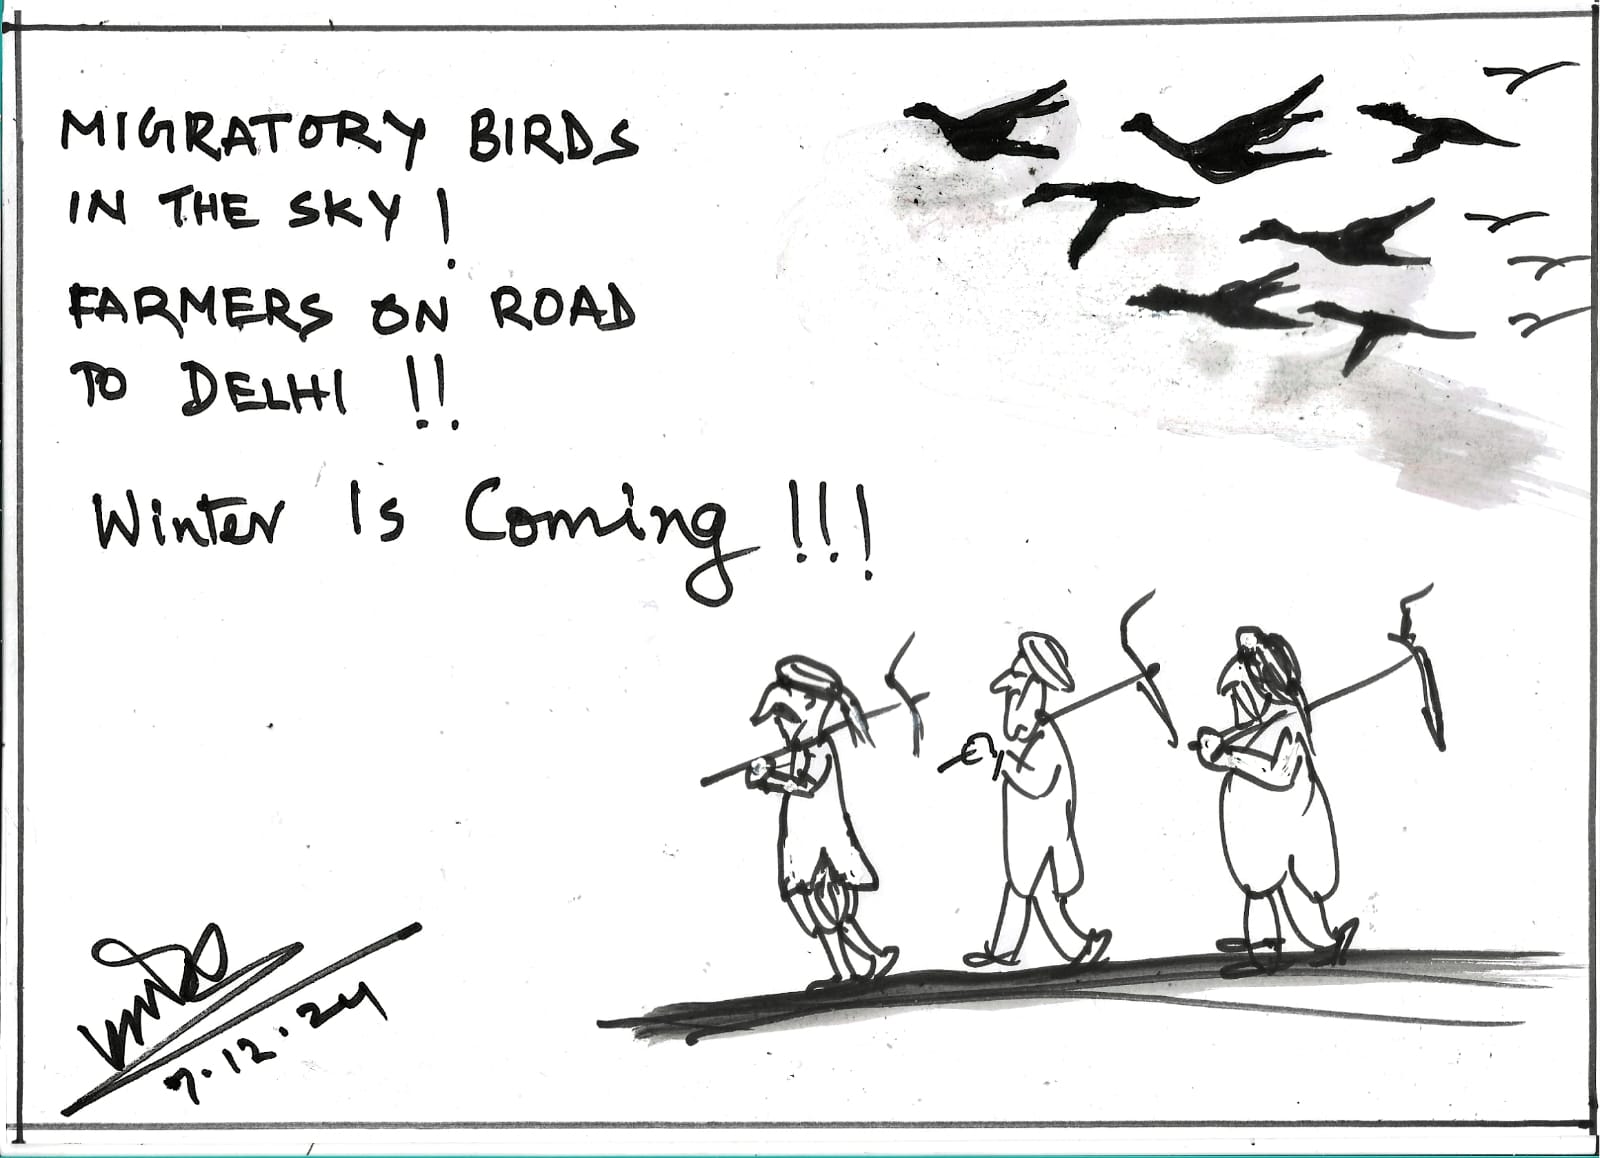 MIGRATORY BIRDS
IN THE SKY!
FARMERS ON ROAD
TO DELHI !!
Winter Is Coming !!!
7.12.24